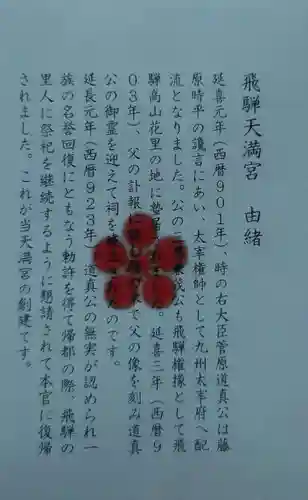 飛騨天満宮 由緒
延喜元年(西暦901年)、時の右大臣菅原道真公は藤
原時平の讒言にあい、太宰権師として九州太宰府へ配
流となりました。公の三 兼茂公も飛騨権掾として飛
騨高山花里の地に蟄居 た。延喜三年(西暦9
03年)、父の訃報に で父の像を刻み道真
公の御霊を迎えて祠を のです。
延長元年(西暦923年)道真公の無実が認められ一
族の名誉回復にともなう勅許を得て帰都の際、飛騨の
里人に祭祀を継続するように懇請されて本宮に復帰
されました。これが当天満宮の創建です。